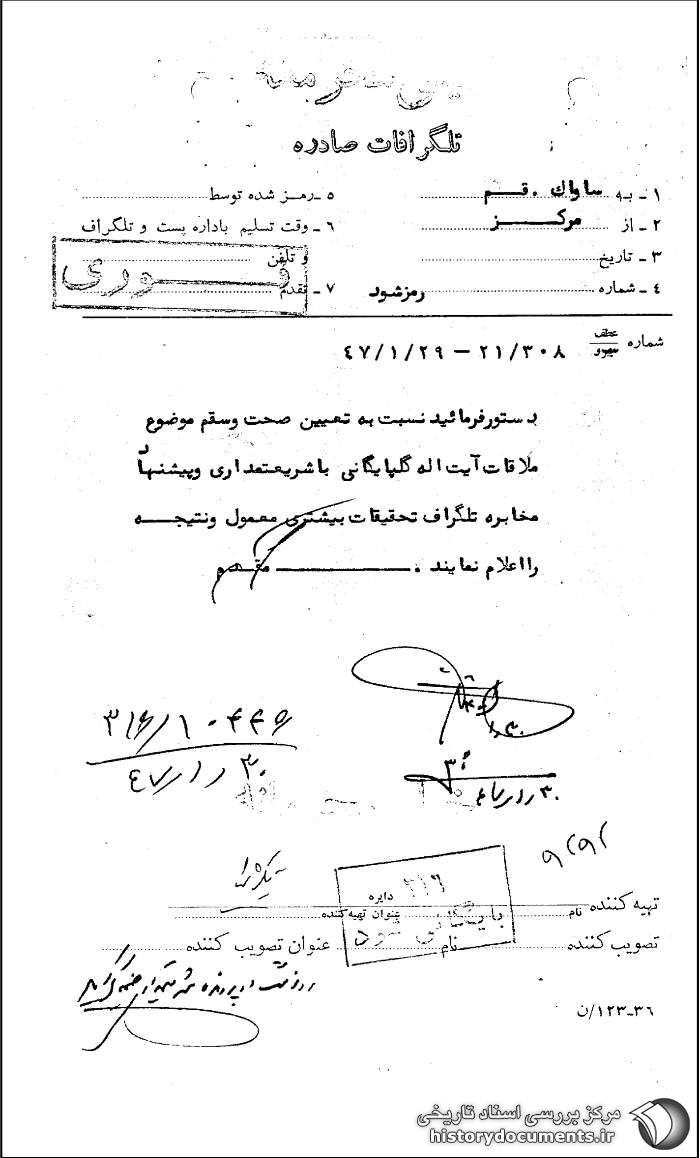 تلگرافات صادره
۱ - به ساواك . قم
۲ - از مرکز
۳ - تاریخ
۴ - شماره رمزشود
۵ - رمز شده توسط
۶ - وقت تسلیم باداره پست و تلگراف
و تلفن
۷ - تقدم
فوری
شماره عطف ۲۱/۳۰۸ - ۴۷/۱/۲۹
پیرو
دستورفرمائید نسبت به تعیین صحت وسقم موضوع
ملاقات آیت اله گلپایگانی باشریعتمداری وپیشنهاد
مخابره تلگراف تحقیقات بیشتری معمول ونتیجه
رااعلام نمایند . مقدم
۳۱۶/۱۰۴۴۶
۳۰ ر۱ر۴۷
۳۰ر۱ر۴۷
دایره ۳۱۶
بایگانی شود
تهیه کننده نام عنوان تهیه کننده
تصویب کننده نام عنوان تصویب کننده
۳۶-۱۲۳/ن
مرکز بررسی اسناد تاریخی
historydocuments.ir